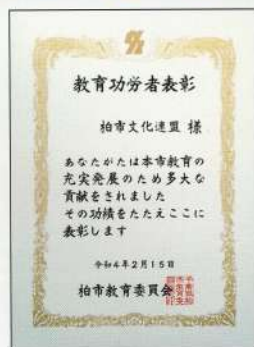 教育功労者表彰
柏市文化連盟 様
あなたがたは本市教育の
充実発展のため多大な
貢献をされました
その功績をたたえここに
表彰します
令和4年2月15日
柏市教育委員会